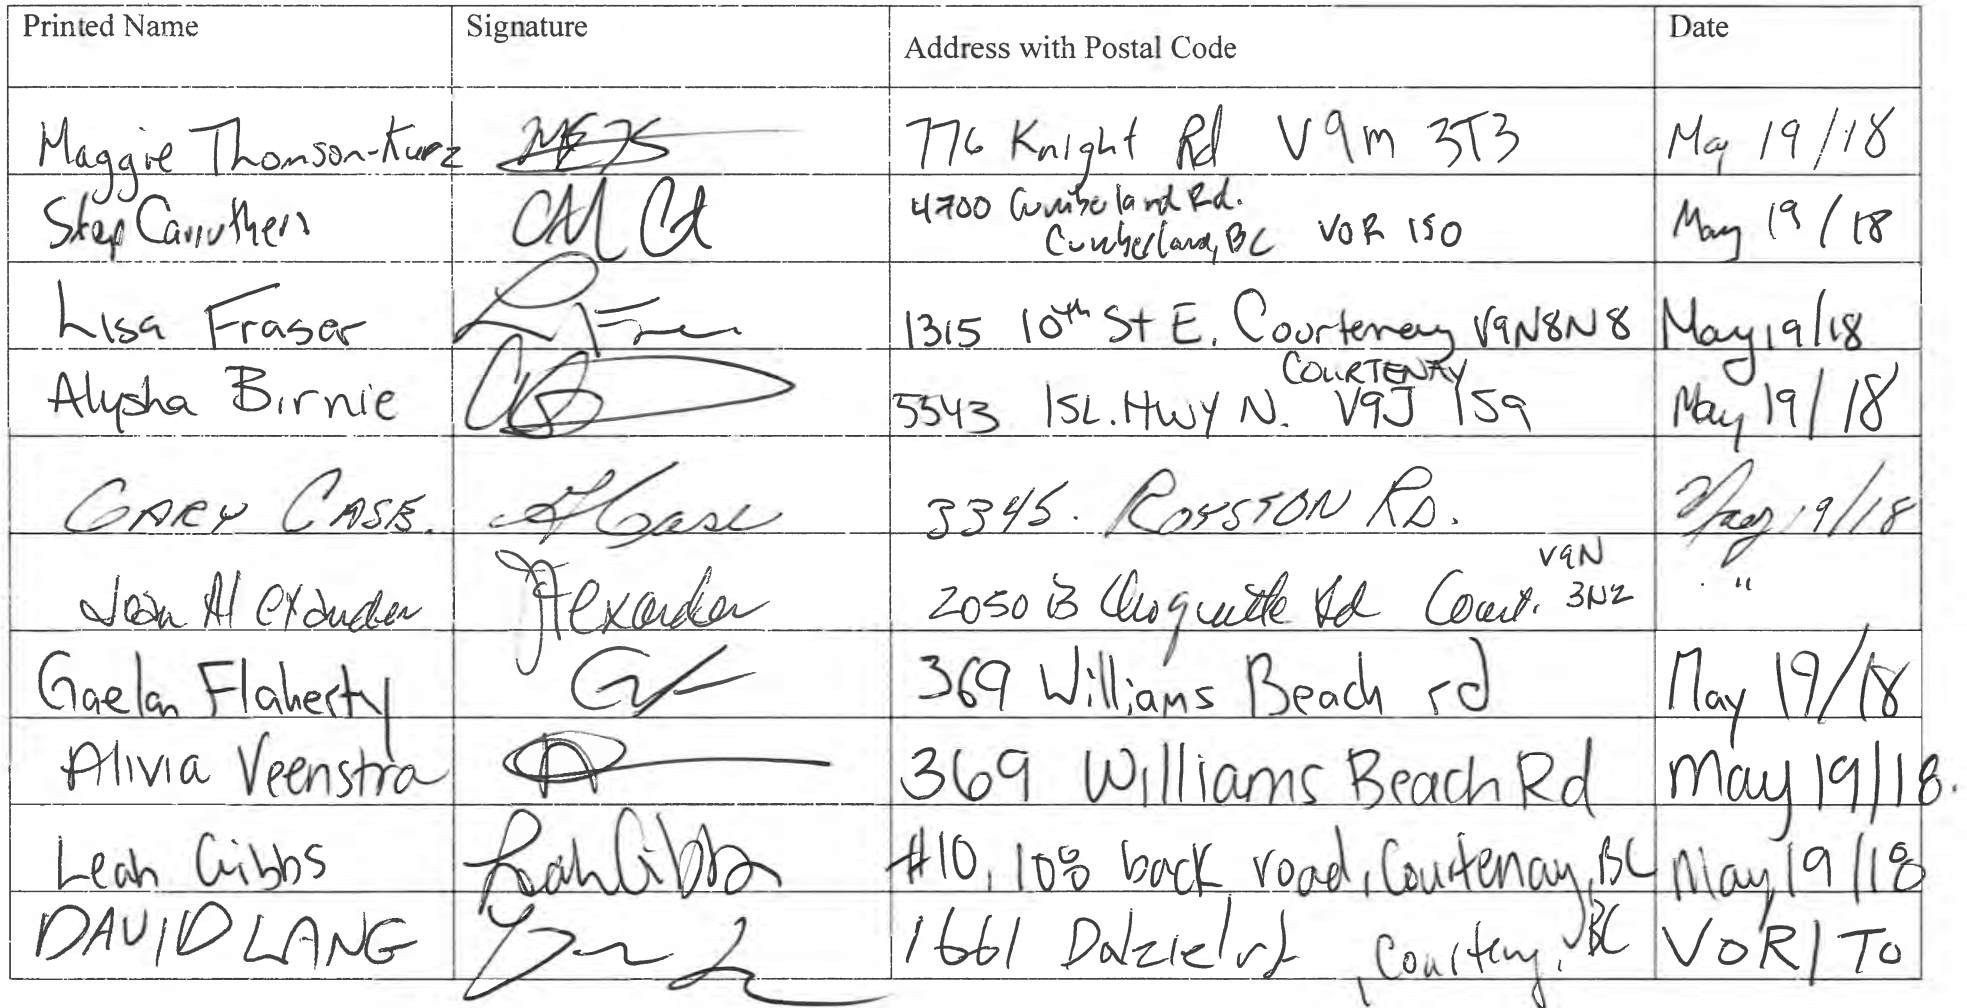 Printed Name Signature Address with Postal Code Date
Maggie Thomson-Kurz 776 Knight Rd V9m 3T3 May 19/18
Step Carruthers 4700 Cumberland Rd. May 19/18
Cumberland, BC V0R 1S0
Lisa Fraser 1315 10th St E. Courtenay V9N8N8 May 19/18
COURTENAY
Alysha Birnie 5543 ISL. HWY N. V9J 1S9 May 19/18
GARY CASE. Case 3345. ROYSTON RD. May 19/18
V9N
Joan Alexander JAlexander 2050 B Choquette Rd Court. 3N2 "
Gaelan Flaherty 369 Williams Beach rd May 19/18
Alivia Veenstra 369 Williams Beach Rd May 19/18.
Leah Gibbs Leah Gibbs #10, 108 back road, Courtenay, BC May 19/18
DAVID LANG 1661 Dalziel rd, Courtenay, BC V0R 1T0